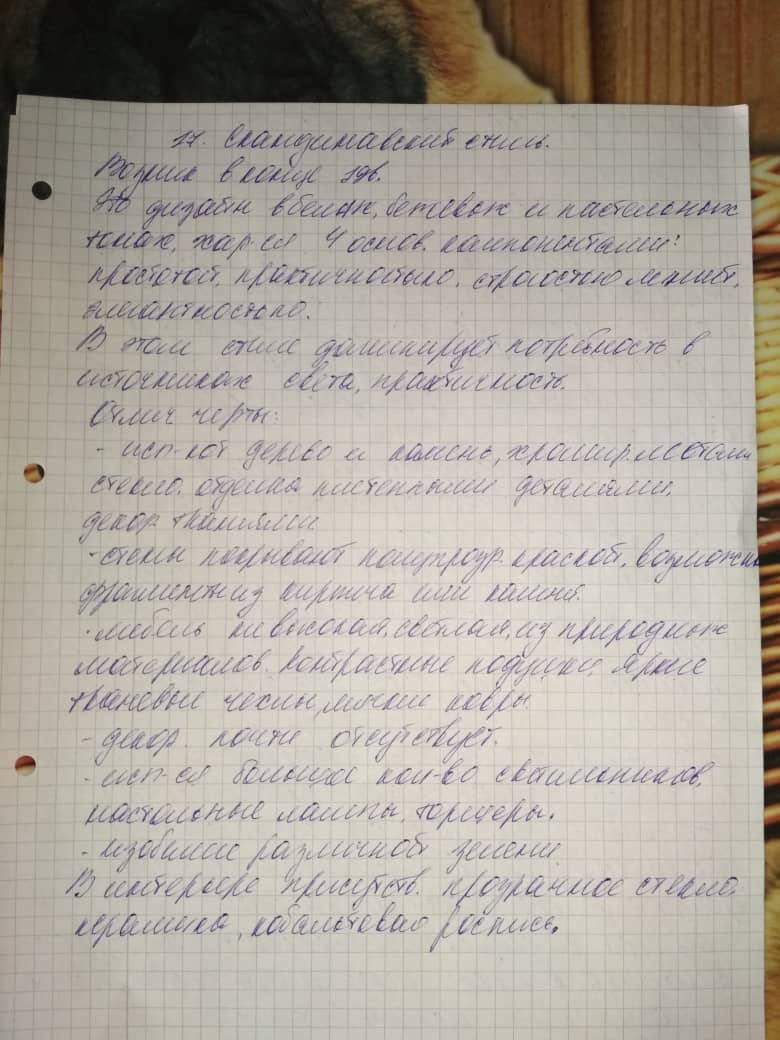 17. Скандинавский стиль.
Возник в конце 19в.
Это дизайн в белых, бежевых и пастельных
тонах, хар-ся 4 основ. компонентами:
простотой, практичностью, строгостью линий,
элегантностью.
В этом стиле доминирует потребность в
источниках света, практичность.
Отлич черты:
- исп-ют дерево и камень, хромир. металл
стекло, отделка плетенными деталями,
декор. тканями
- стены покрывают полупрозр. краской, возможны
фрагменты из кирпича или камня.
- мебель невысокая, светлая, из природных
материалов. Контрастные подушки, яркие
тканевые чехлы, мягкие ковры.
- декор. почти отсутствует.
- исп-ся большое кол-во светильников,
настольные лампы, торшеры.
- изобилие различной зелени
В интерьере присутств. прозрачное стекло,
керамика, кобальтовая роспись.